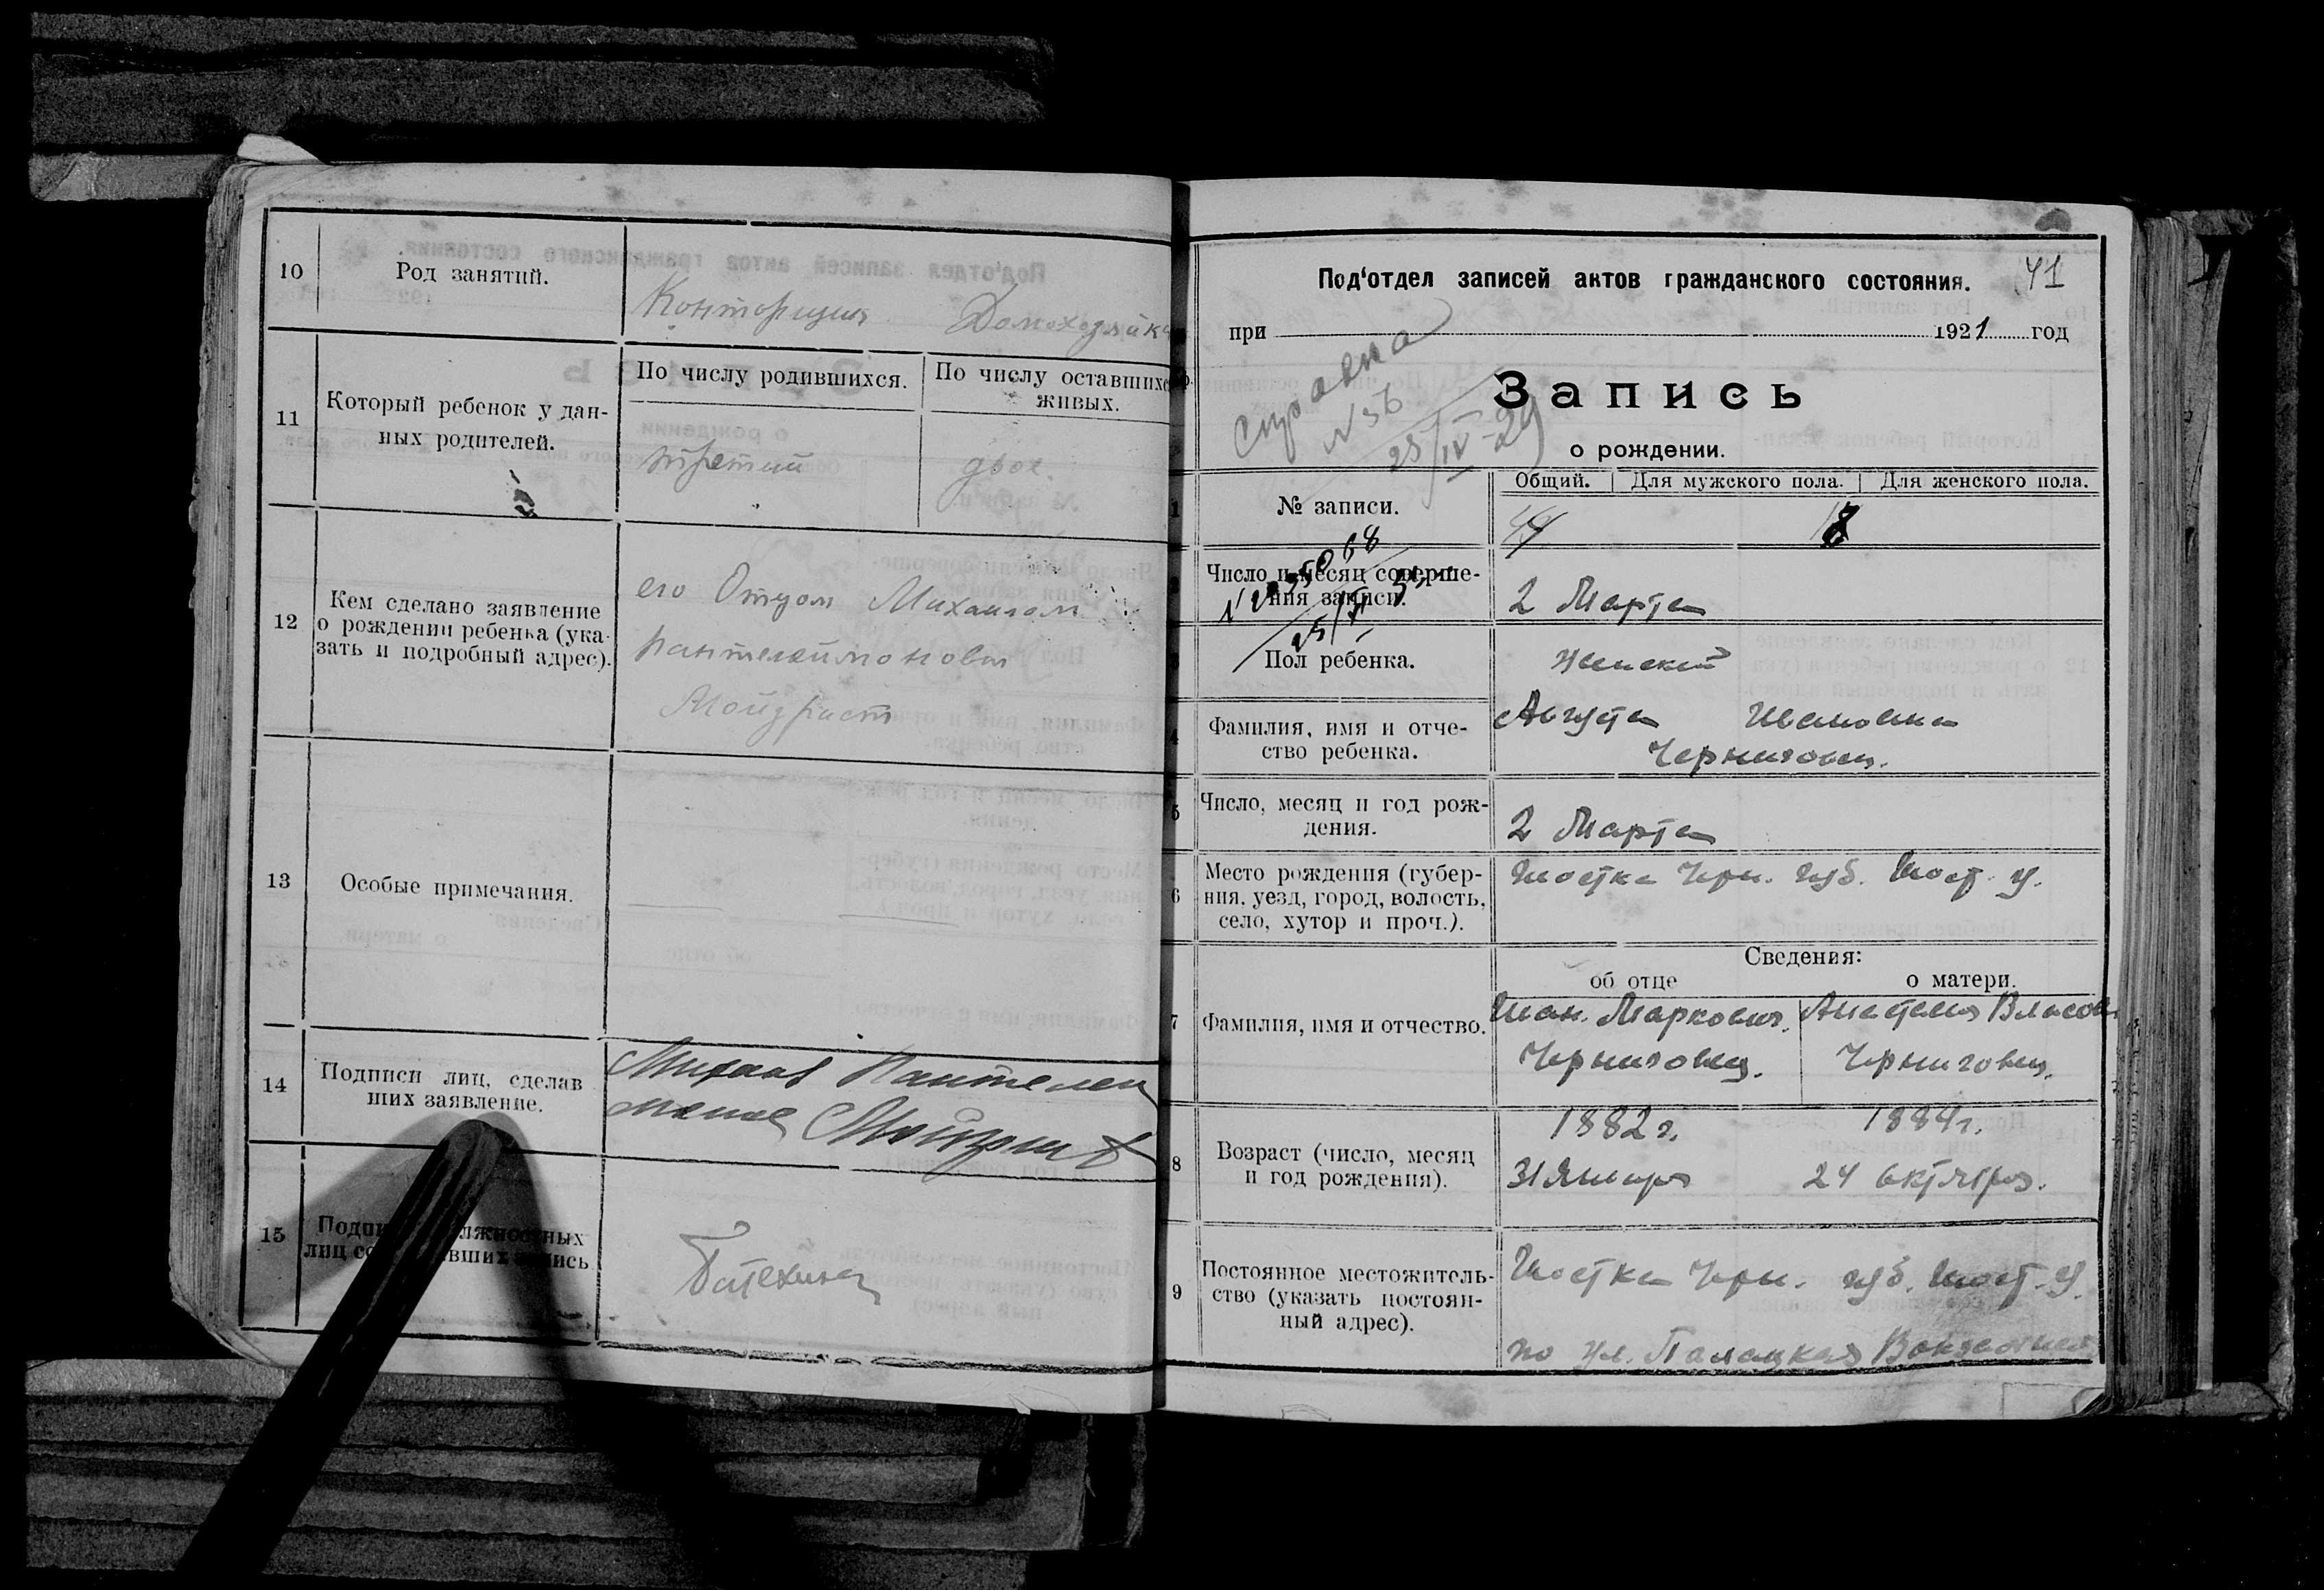 10
Род занятий.
Конторщик Домохозяйка
11
Который ребенок у дан-
ных родителей.
По числу родившихся.
По числу оставшихся
живых.
третий
двое.
12
Кем сделано заявление
о рождении ребенка (ука-
зать и подробный адрес).
его Отцом Михаилом
Пантелеймоновым
13
Особые примечания.
14
Подписи лиц, сделав
ших заявление.
Михаил Пантелей
15
Под'отдел записей актов гражданского состояния.
41
при 1921 год
Справка
N 36
25/IV-29
Запись
о рождении.
1
№ записи.
Общий. Для мужского пола. Для женского пола.
Число и месяц соверше-
ния записи.
2 Марта
Пол ребенка.
женский
4
Фамилия, имя и отче-
ство ребенка.
Августа Ивановна
Черниговец.
5
Число, месяц и год рож-
дения.
2 Марта
6
Место рождения (губер-
ния, уезд, город, волость,
село, хутор и проч.).
Шостка Черн. губ. Шост. у.
Сведения:
об отце
о матери.
7
Фамилия, имя и отчество.
Иван. Маркович.
Черниговец.
Власов
Черниговец.
8
Возраст (число, месяц
и год рождения).
1882 г.
31 Января
1884 г.
24 октября.
9
Постоянное местожитель-
ство (указать постоян-
ный адрес).
Шостка Черн. губ. Шост. у.
по ул.